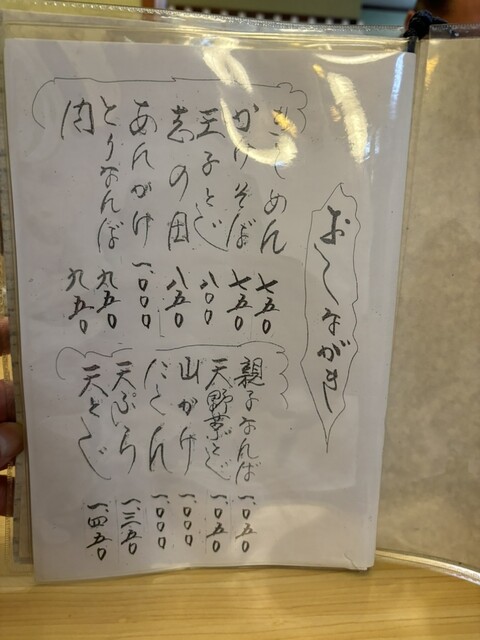 おしながき
きしめん 七五〇
かけそば 七五〇
玉子とじ 八〇〇
志の田 八五〇
あんかけ 一、〇〇〇
とりなんば 九五〇
肉 九五〇
親子なんば 一、〇五〇
天野夢とじ 一、〇五〇
山かけ 一、〇〇〇
にくん 一、〇〇〇
天ぷら 一、三五〇
天とじ 一、四五〇